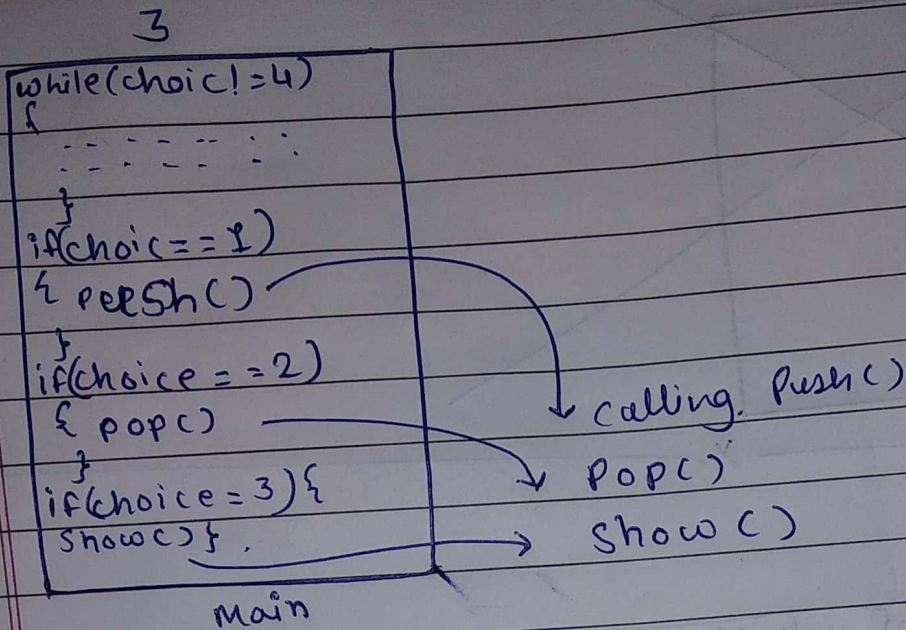 3
while(choic!=4)
{
}
if(choic==1)
{ push()
}
if(choice==2)
{ pop()
}
if(choice=3){
show()}.
Main
calling. Push()
Pop()
Show()